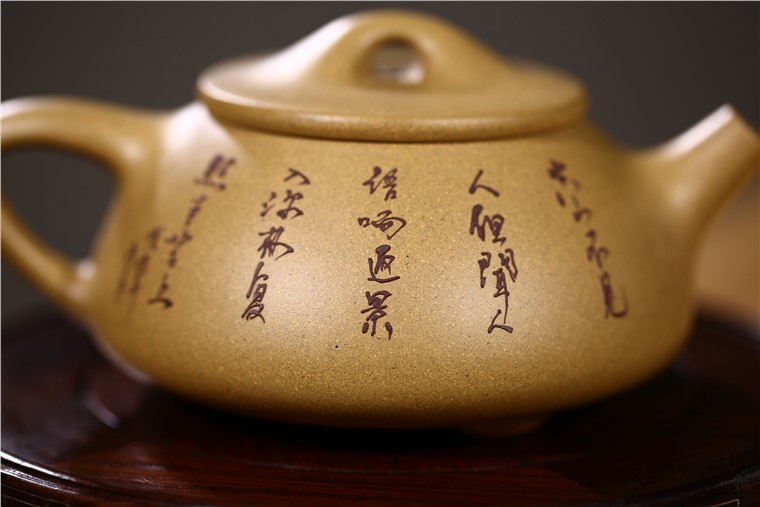 空山不見
人但聞人
語响返景
入深林复
照青苔上